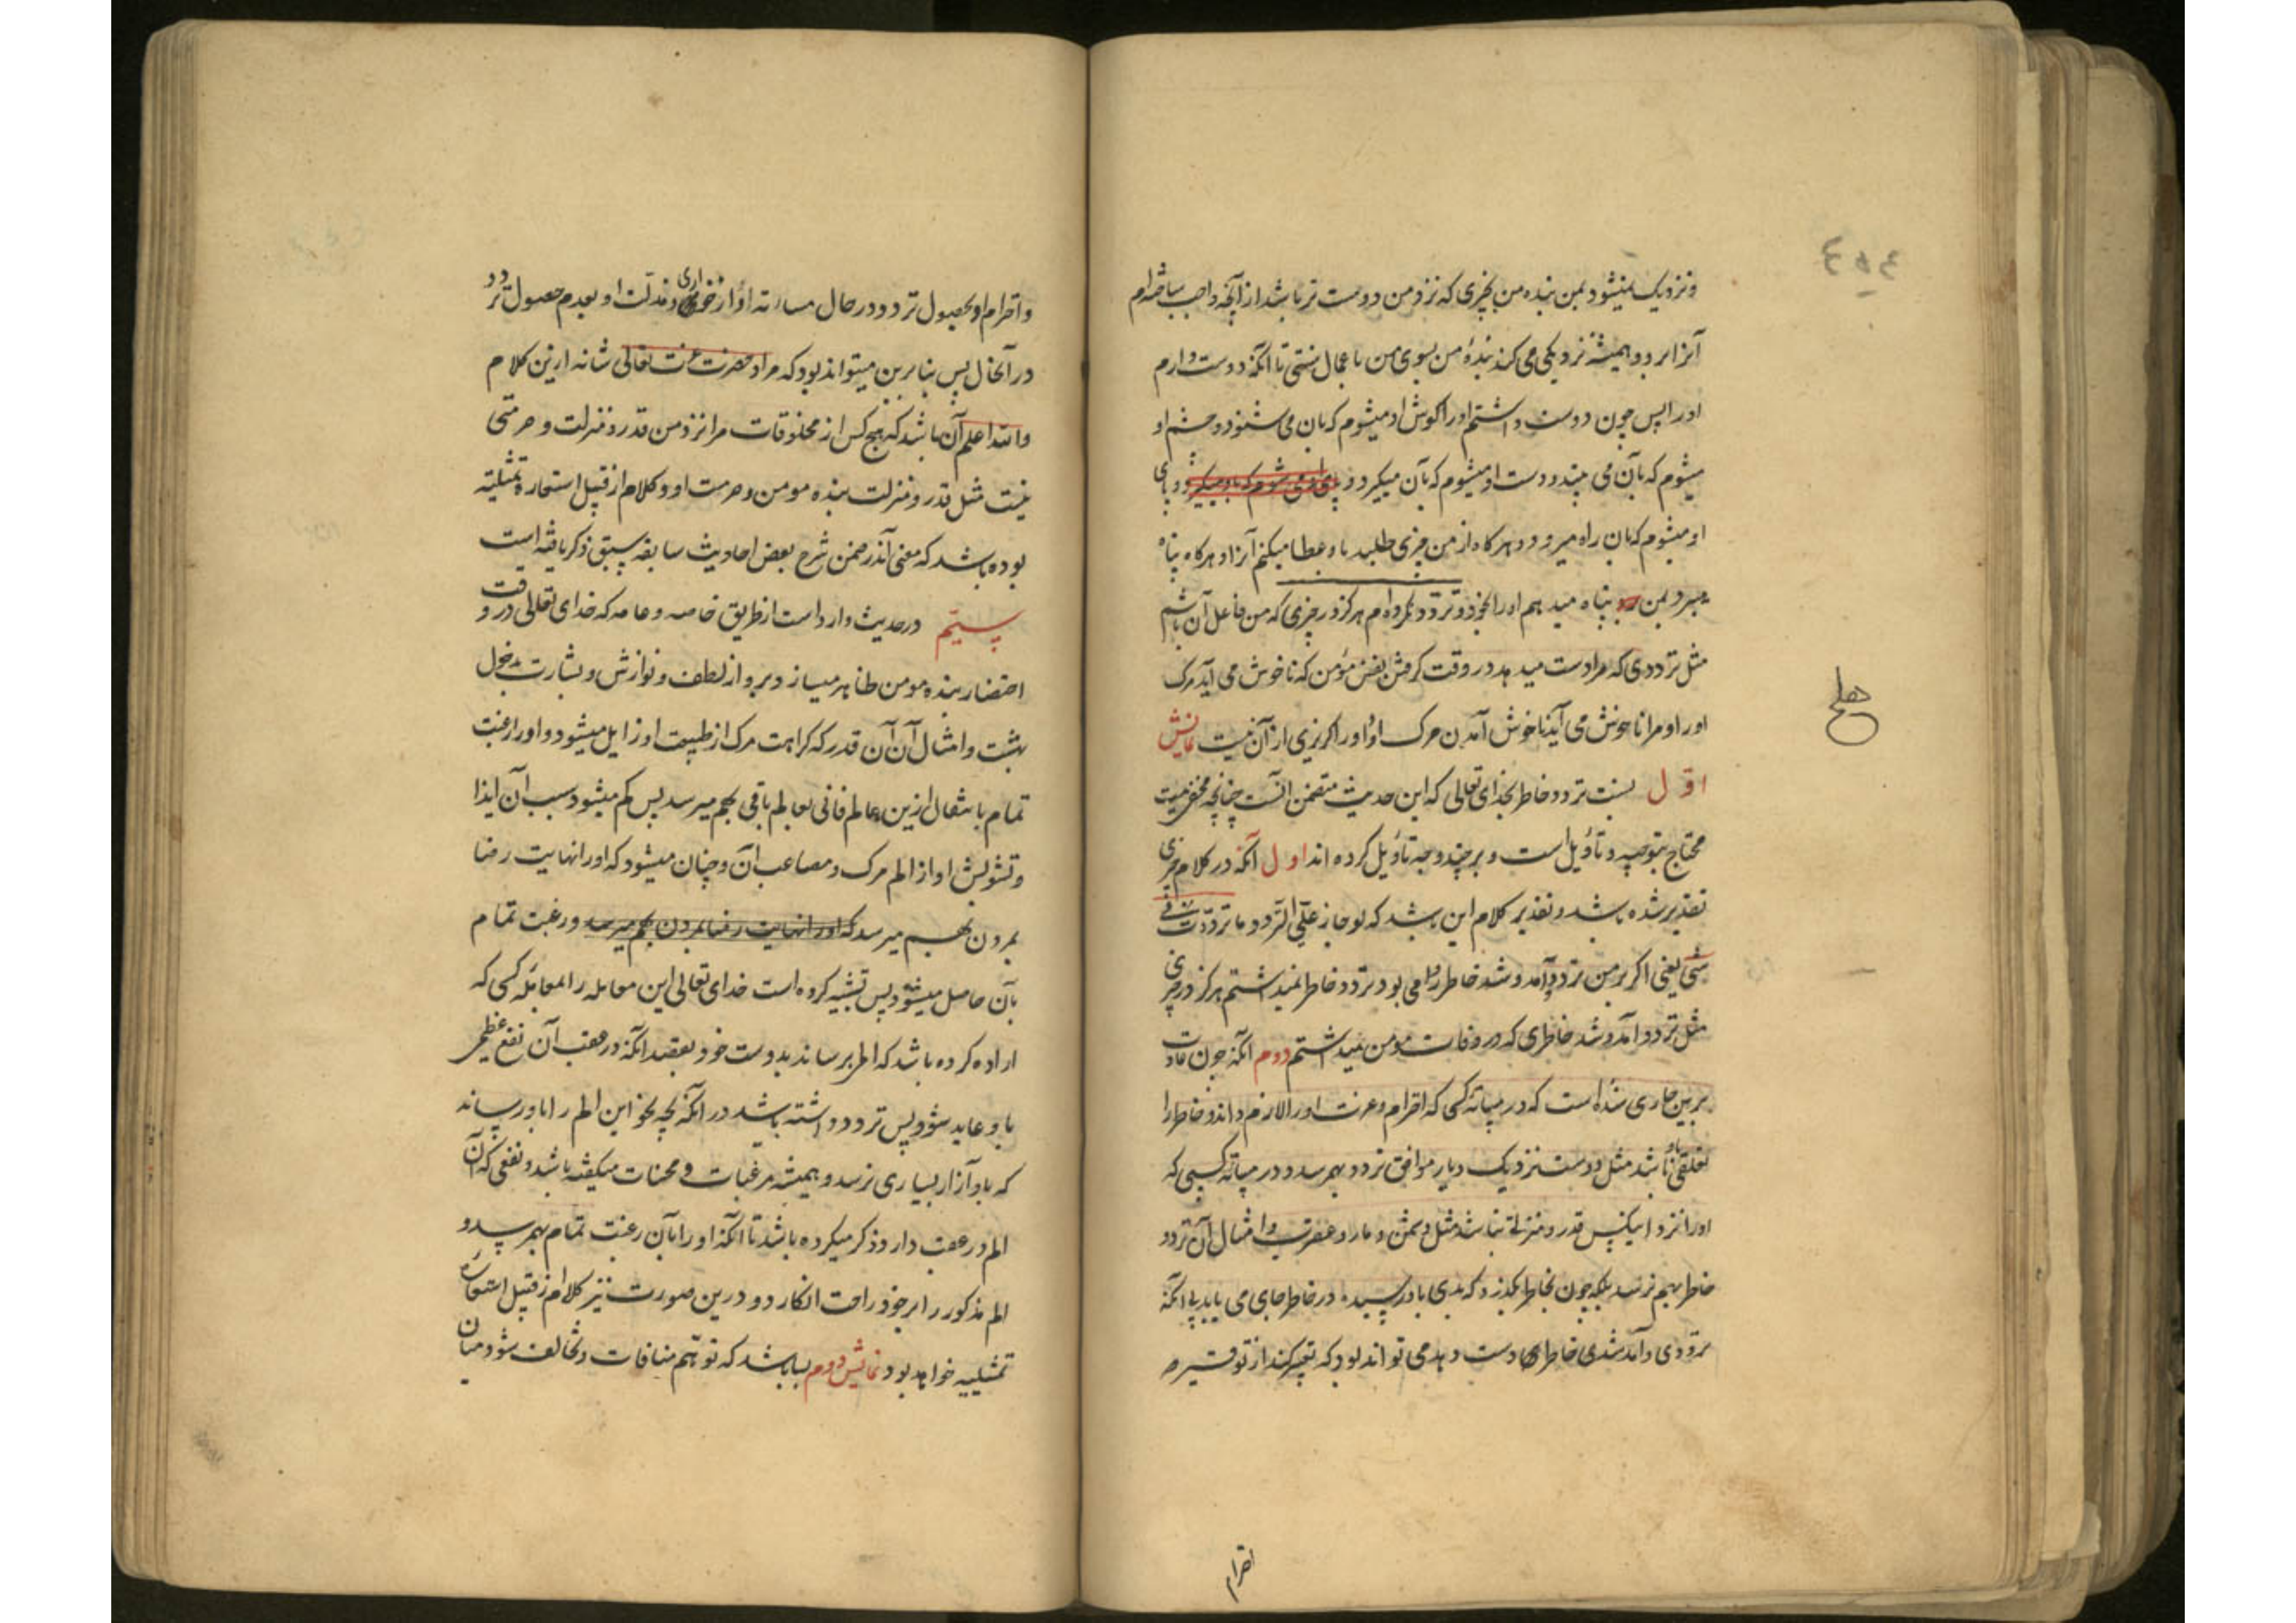 ونزدیک نمیشود بمن بنده من بچیزی که نزد من دوست تر باشد از آنچه واجب ساخته‌ام
آنرا برو و همیشه نزدیکی می کند بندۀ من بسوی من با عمال سنتی تا آنکه دوست دارم
اورا پس چون دوست داشتم اورا گوش او میشوم که بآن می شنود و چشم او
میشوم که بآن می بیند و دست او میشوم که بآن میگیرد و پای او می شوم که باو میگیرد و پای
او میشوم که بآن راه میرود و هرگاه از من چیزی طلبد باو عطا میکنم آنرا و هرگاه پناه
میبرد بمن پناه میدهم اورا بخود و تردد نکرده‌ام هرگز در چیزی که من فاعل آن باشم
مثل ترددی که مرا دست میدهد در وقت گرفتن نفس مؤمن که ناخوش می آید مرگ
اورا و مرا ناخوش می آید ناخوش آمدن مرگ او را و گریزی از آن نیست نمایش
اول نسبت تردد خاطر بخدای تعالی که این حدیث متضمن آنست چنانچه مخفی نیست
محتاج بتوجیه و تأویل است و بر چند وجه تأویل کرده اند اول آنکه در کلام چیزی
تقدیر شده باشد و تقدیر کلام این باشد که لو جاز علیّ التردد ما ترددت فی
شیٔ یعنی اگر بر من تردد و آمد و شد خاطر روا می بود تردد خاطر نمیداشتم هرگز در چیزی
مثل تردد و آمد و شد خاطری که در وفات مومن میداشتم دوم آنکه چون عادت
برین جاری شده است که در مسائۀ کسی که احترام و عزت اورا لازم داند و خاطر را
تعلقی باو باشد مثل دوست نزدیک و یار موافق تردد بهم رسد و در مسائۀ کسی که
اورا نزد این کس قدر و منزلة نباشد مثل دشمن و مار و عقرب و امثال آن تردد
خاطر بهم نرسد بلکه چون بخاطر گذرد که بدی باو رسید در خاطر جای می یابد بی آنکه
ترددی و آمد شدی خاطر را دست دهد می تواند بود که تعبیر کند از توقیر
احترام
و احترام او بحصول تردد در حال مسائه او و از خواری و مذلت او بعدم حصول تردد
در آنحال پس بنا برین میتواند بود که مراد حضرت عزت تعالی شانه ازین کلام
والله اعلم آن باشد که هیچ کس از مخلوقات مرا نزد من قدر و منزلت و حرمتی
نیست مثل قدر و منزلت بنده مومن و حرمت او و کلام از قبیل استعارۀ تمثیلیه
بوده باشد که معنی آن در ضمن شرح بعض احادیث سابقه سبق ذکر یافته است
سیّم در حدیث وارد است از طریق خاصه و عامه که خدای تعالی در وقت
احتضار بنده مومن ظاهر میسازد برو از لطف و نوازش و بشارت بدخول
بهشت و امثال آن آن قدر که کراهت مرگ از طبیعت او زایل میشود و اورا رغبت
تمام با نتقال ازین عالم فانی بعالم باقی بهم میرسد پس کم میشود بسبب آن ایذا
و تشویش او از الم مرگ و مصاعب آن و چنان میشود که اورا نهایت رضا
بمردن بهم میرسد که اورا نهایت رضا بمردن بهم میرسد و رغبت تمام
بآن حاصل میشود پس تشبیه کرده است خدای تعالی این معامله را بمعاملۀ کسی که
اراده کرده باشد که المی برساند بدوست خود بقصد آنکه در عقب آن نفع عظیمی
باو عاید شود پس تردد داشته باشد در آنکه بچه نحو این الم را باو رساند
که باو آزار بسیاری نرسد و همیشه مرغبات و محسنات میگفته باشد و نفعی که آن
الم در عقب دارد ذکر میکرده باشد تا آنکه اورا بآن رغبت تمام بهم رسد و
الم مذکور را بر خود راحت انگارد و درین صورت نیز کلام از قبیل استعاره
تمثیلیه خواهد بود نمایش دوم بسا باشد که توهّم منافات و تخالف شود میان